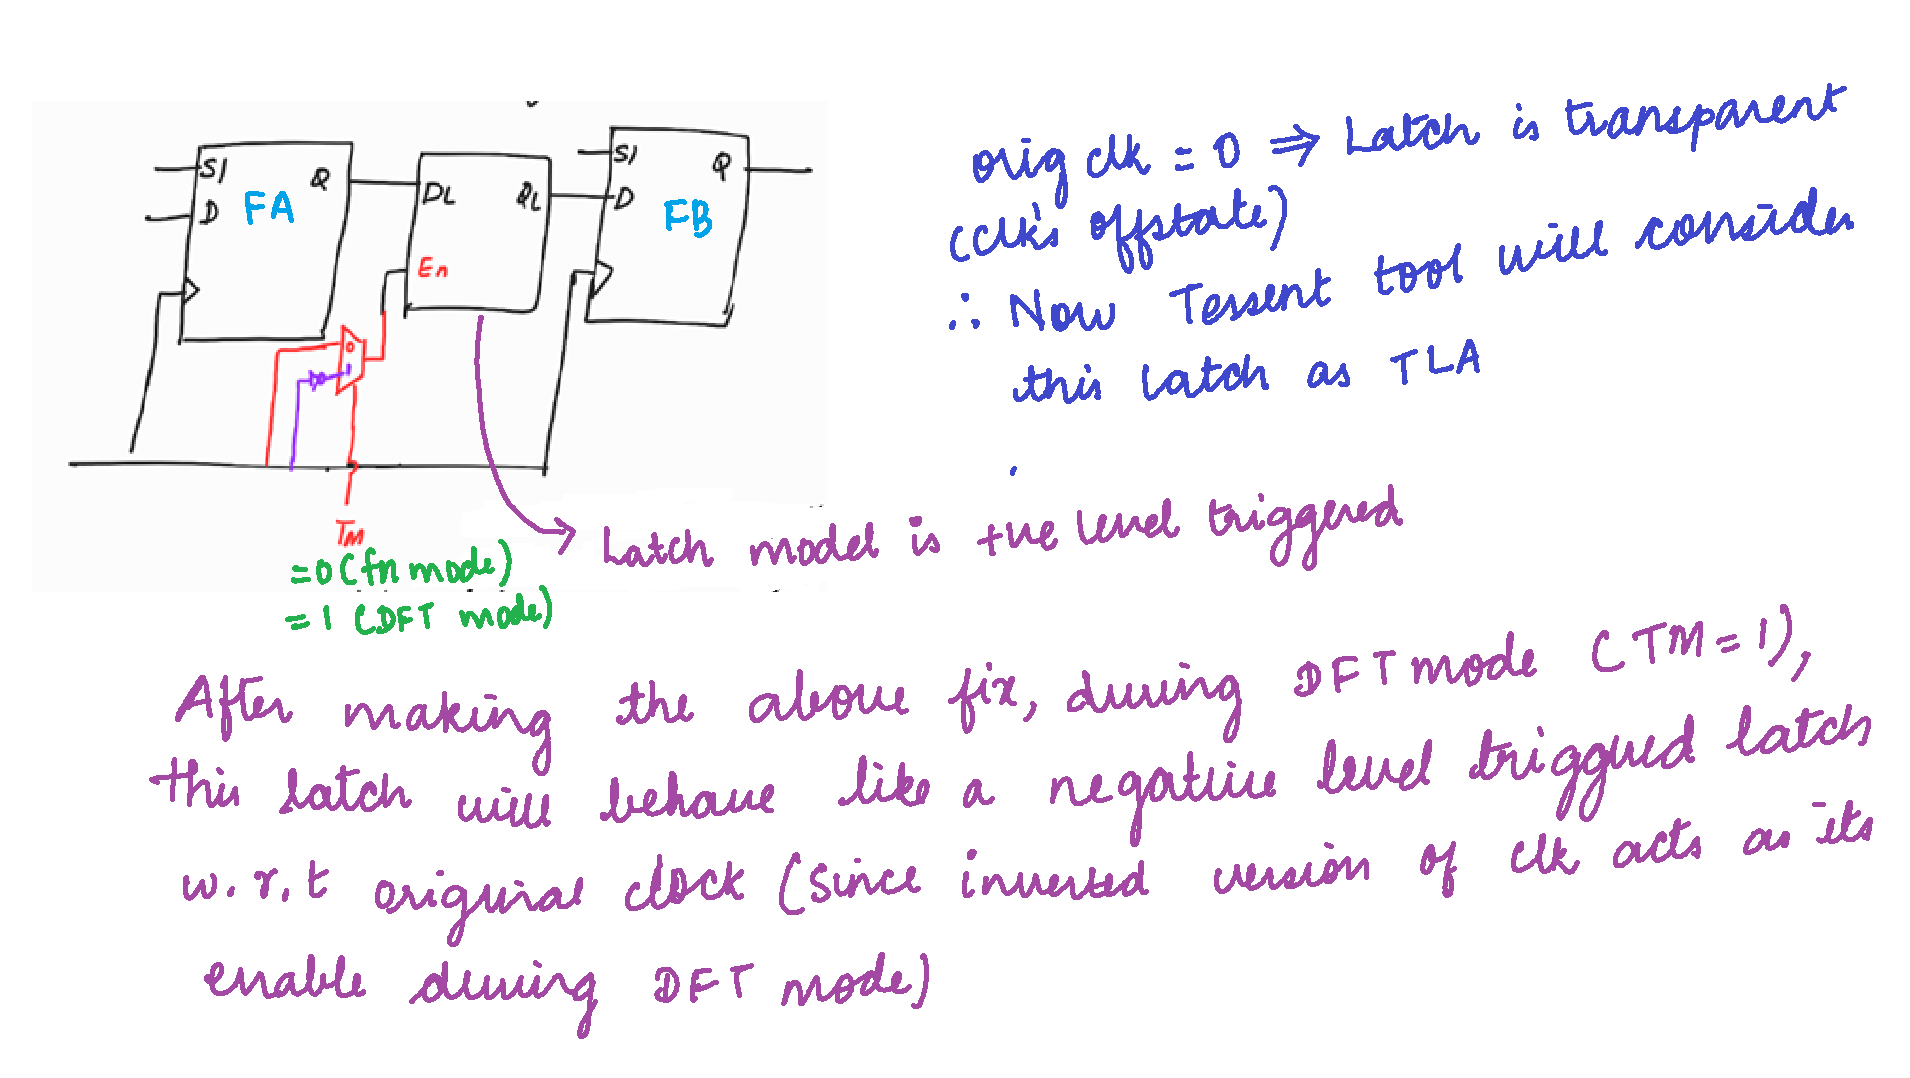 SI
D
FA
Q
DL
QL
En
SI
D
FB
Q
0
1
TM
=0 (fn mode)
=1 (DFT mode)
orig clk = 0 ⇒ Latch is transparent
(clk's offstate)
∴ Now Tessent tool will consider
this latch as TLA
Latch model is +ve level triggered
After making the above fix, during DFT mode (TM=1),
this latch will behave like a negative level triggered latch
w.r.t original clock (since inverted version of clk acts as its
enable during DFT mode)